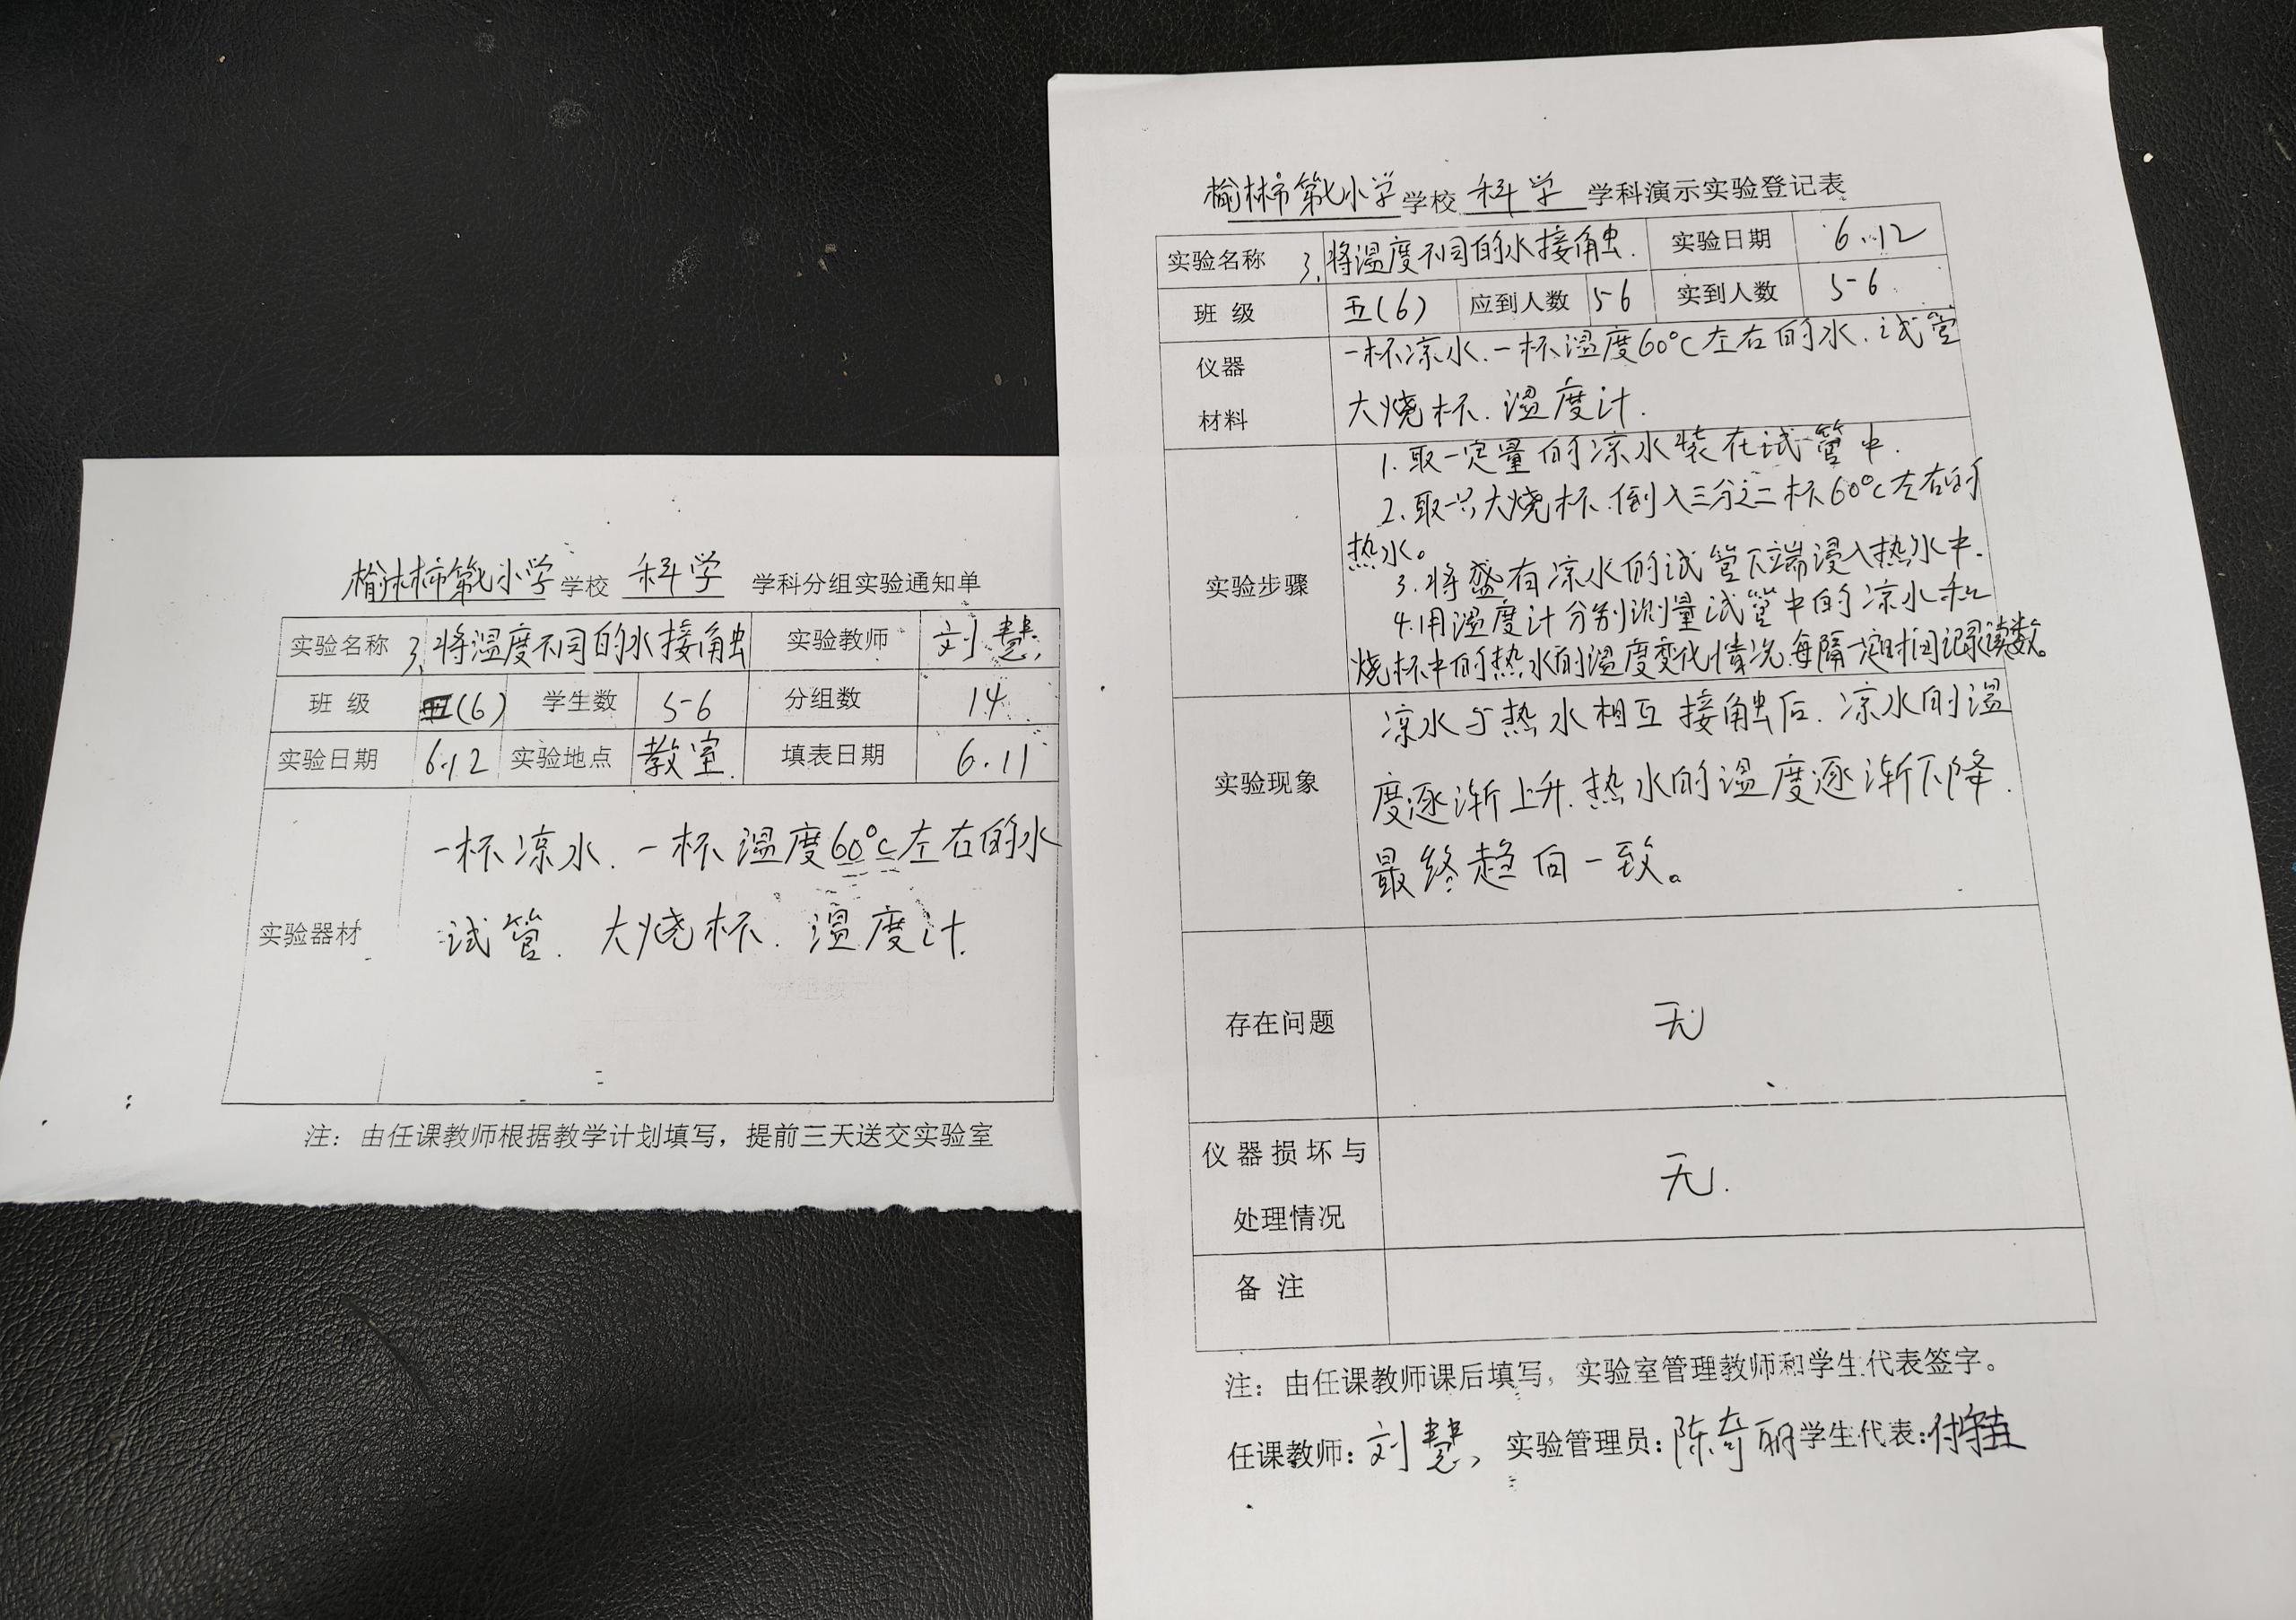 榆林市第七小学学校 科学 学科分组实验通知单
实验名称 3.将温度不同的水接触 实验教师 刘慧
班级 五(6) 学生数 56 分组数 14
实验日期 6.12 实验地点 教室. 填表日期 6.11
实验器材
一杯凉水.一杯温度60°C左右的水
试管.大烧杯.温度计.
注：由任课教师根据教学计划填写，提前三天送交实验室
榆林市第七小学学校 科学 学科演示实验登记表
实验名称 3.将温度不同的水接触. 实验日期 6.12
班级 五(6) 应到人数 56 实到人数 56
仪器
材料
一杯凉水.一杯温度60°C左右的水.试管
大烧杯.温度计.
实验步骤
1.取一定量的凉水装在试管中.
2.取一只大烧杯.倒入三分之二杯60°C左右的
热水。
3.将盛有凉水的试管下端浸入热水中.
4.用温度计分别测量试管中的凉水和
烧杯中的热水的温度变化情况.每隔一定时间记录读数。
实验现象
凉水与热水相互接触后.凉水的温
度逐渐上升.热水的温度逐渐下降.
最终趋向一致。
存在问题 无
仪器损坏与
处理情况
无.
备注
注：由任课教师课后填写，实验室管理教师和学生代表签字。
任课教师：刘慧 实验管理员：陈奇丽 学生代表：